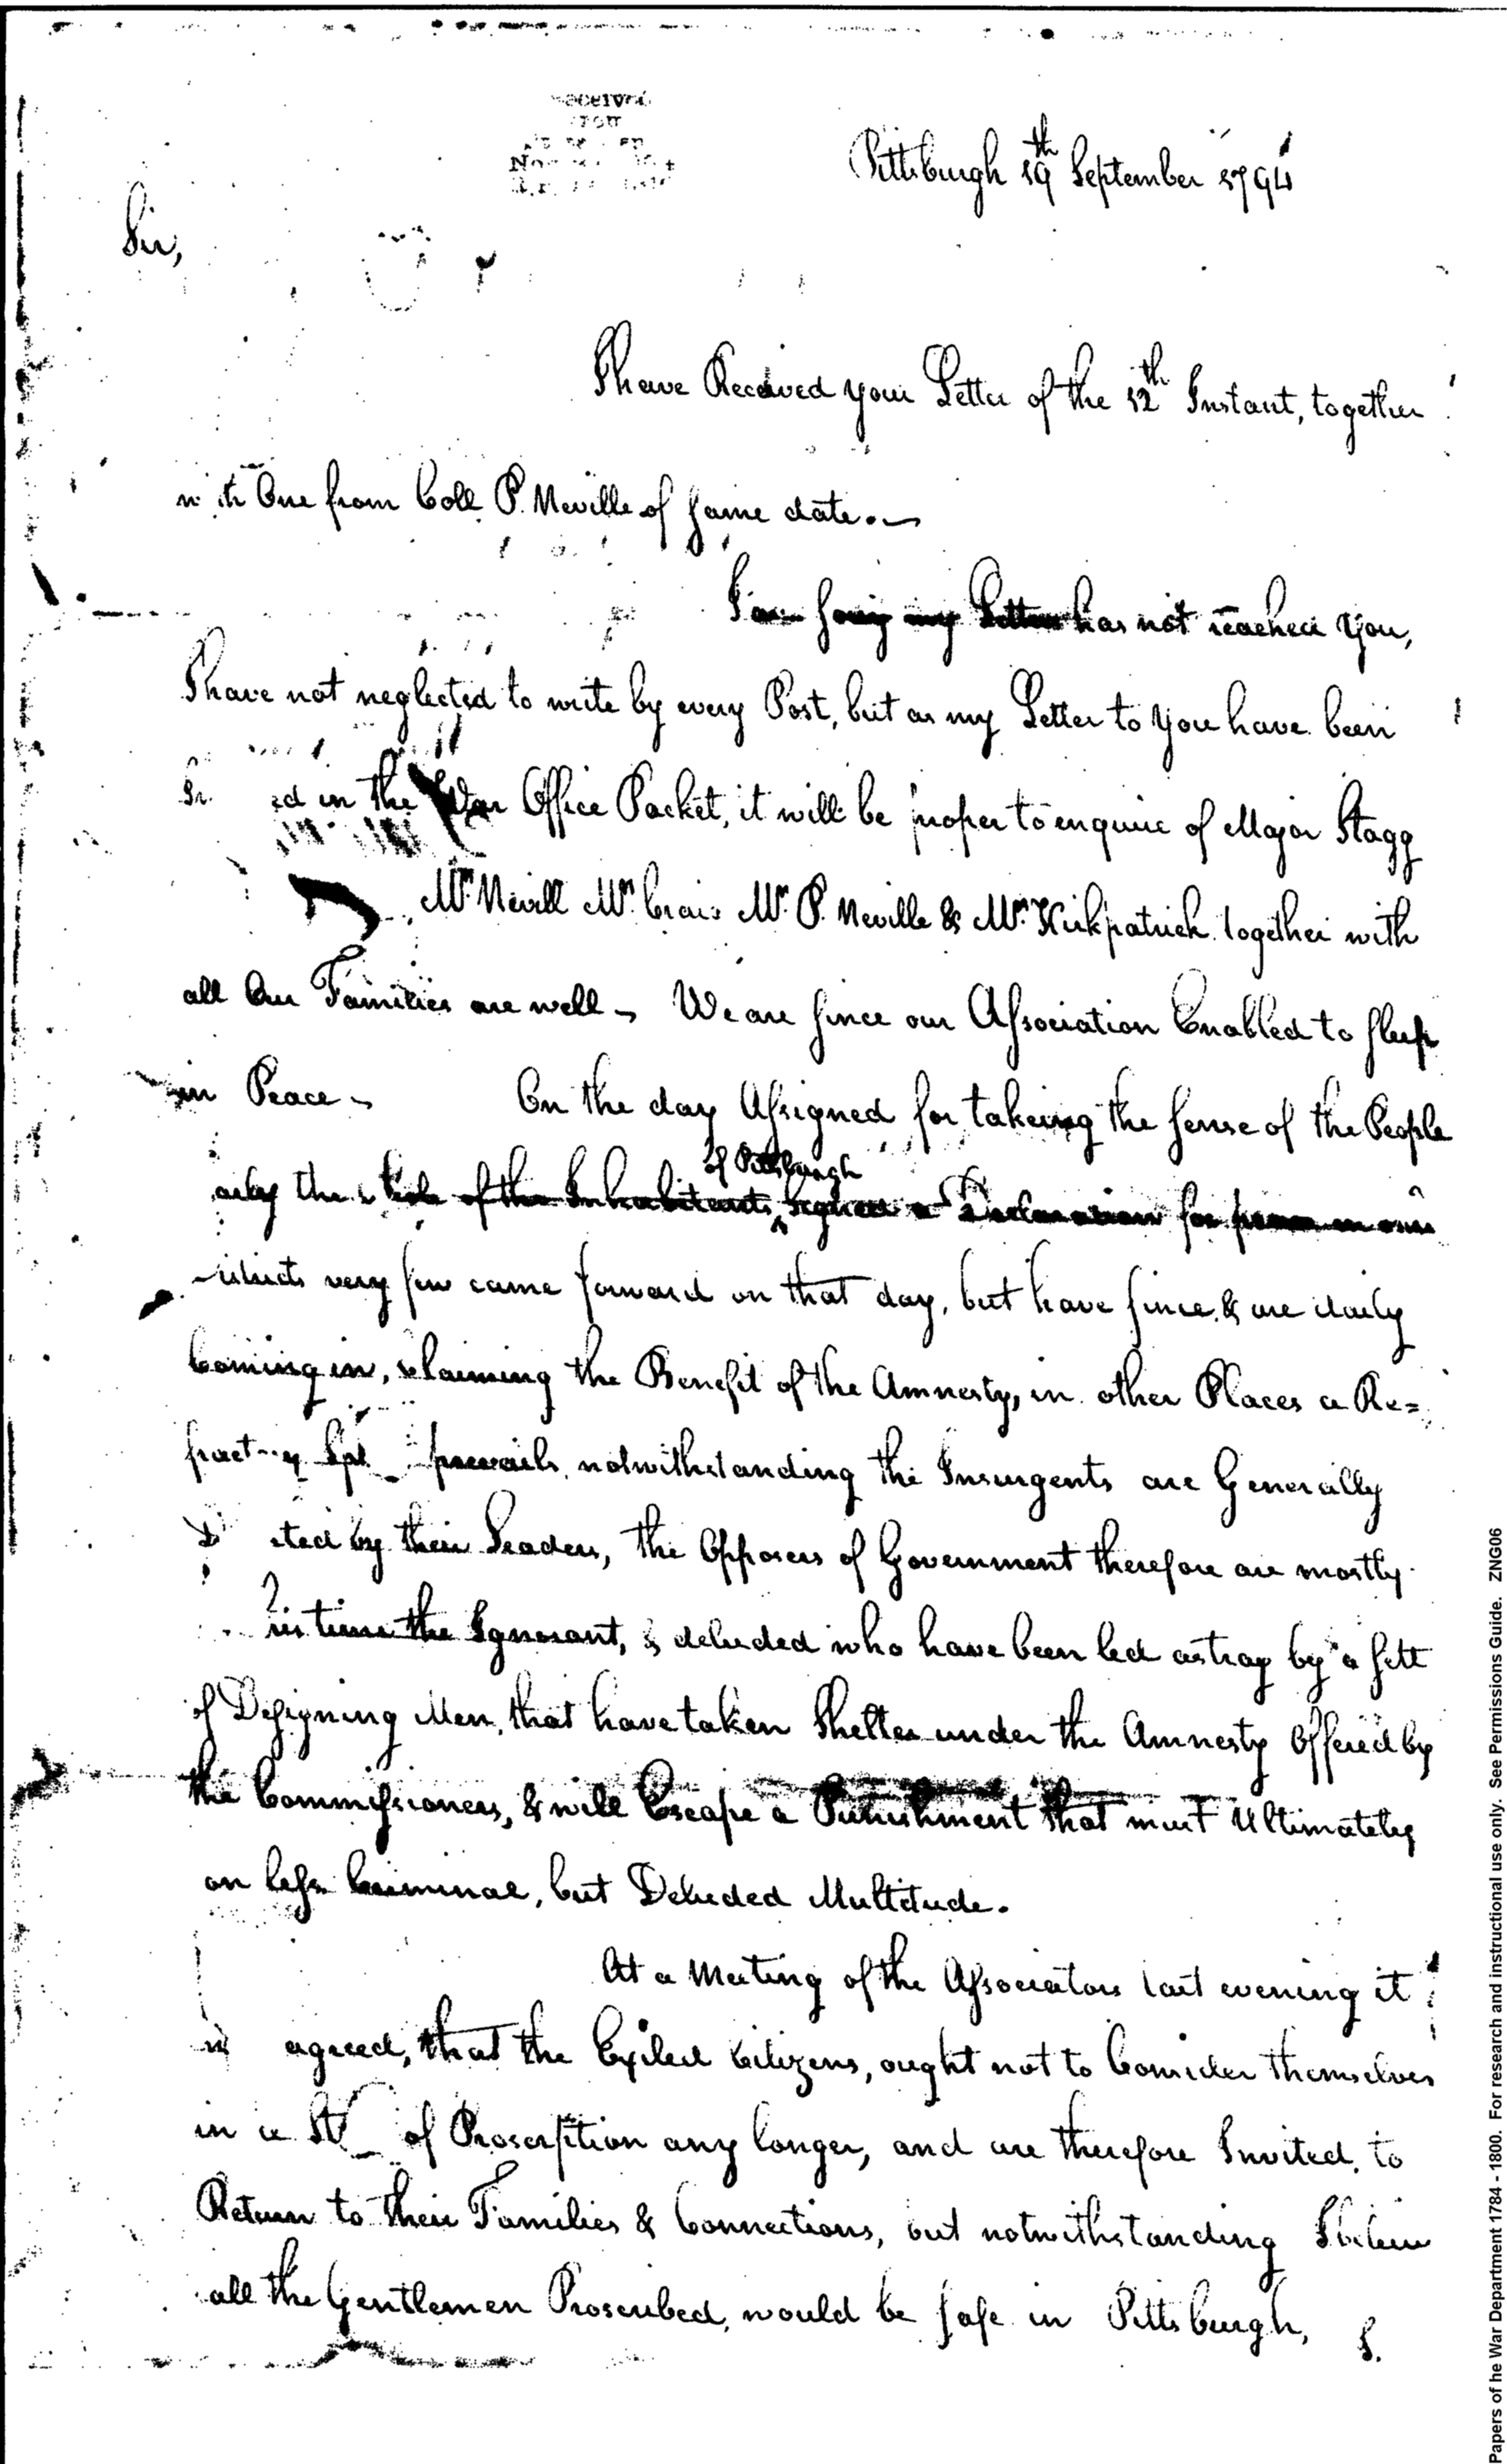 Pittsburgh 19th September 1794
Sir,
I have Received your Letter of the 12th Instant, together
with One from Coll. P. Neville of same date.
I am sorry my Letter has not reached you,
I have not neglected to write by every Post, but as my Letter to you have been
in the War Office Packet, it will be proper to enquire of Major Stagg
Mrs. Nevill Mrs. Craig Mrs. P. Neville & Mrs. Kirkpatrick together with
all Our Families are well - We are since our Association Enabled to sleep
in Peace - On the day Assigned for takeing the sense of the People
only the whole of the Inhabitants of Pittsburgh, signed a Declaration for
very few came forward on that day, but have since, & are daily
Coming in, claiming the Benefit of the Amnesty, in other Places a Re=
fractory prevails, notwithstanding the Insurgents are Generally
by their Leaders, the Opposers of Government therefore are mostly
the Ignorant, & deluded who have been led astray by a sett
of Designing Men, that have taken Shelter under the Amnesty Offered by
the Commissioners, & will Escape a Punishment that must Ultimately
on less Criminal, but Deluded Multitude.
At a Meeting of the Associators last evening it
agreed, that the Exiled Citizens, ought not to Consider themselves
in a of Proscription any longer, and are therefore Invited, to
Return to their Families & Connections, but notwithstanding I believe
all the Gentlemen Proscribed, would be safe in Pittsburgh, I
Papers of he War Department 1784 - 1800. For research and instructional use only. See Permissions Guide. ZNG06